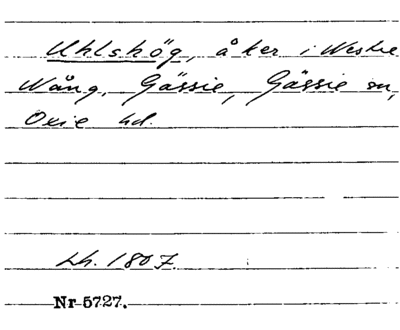 Uhlshög, åker i Westre
Wång, Gässie, Gässie sn,
Oxie hd.
Lh. 1807.
Nr 5727.